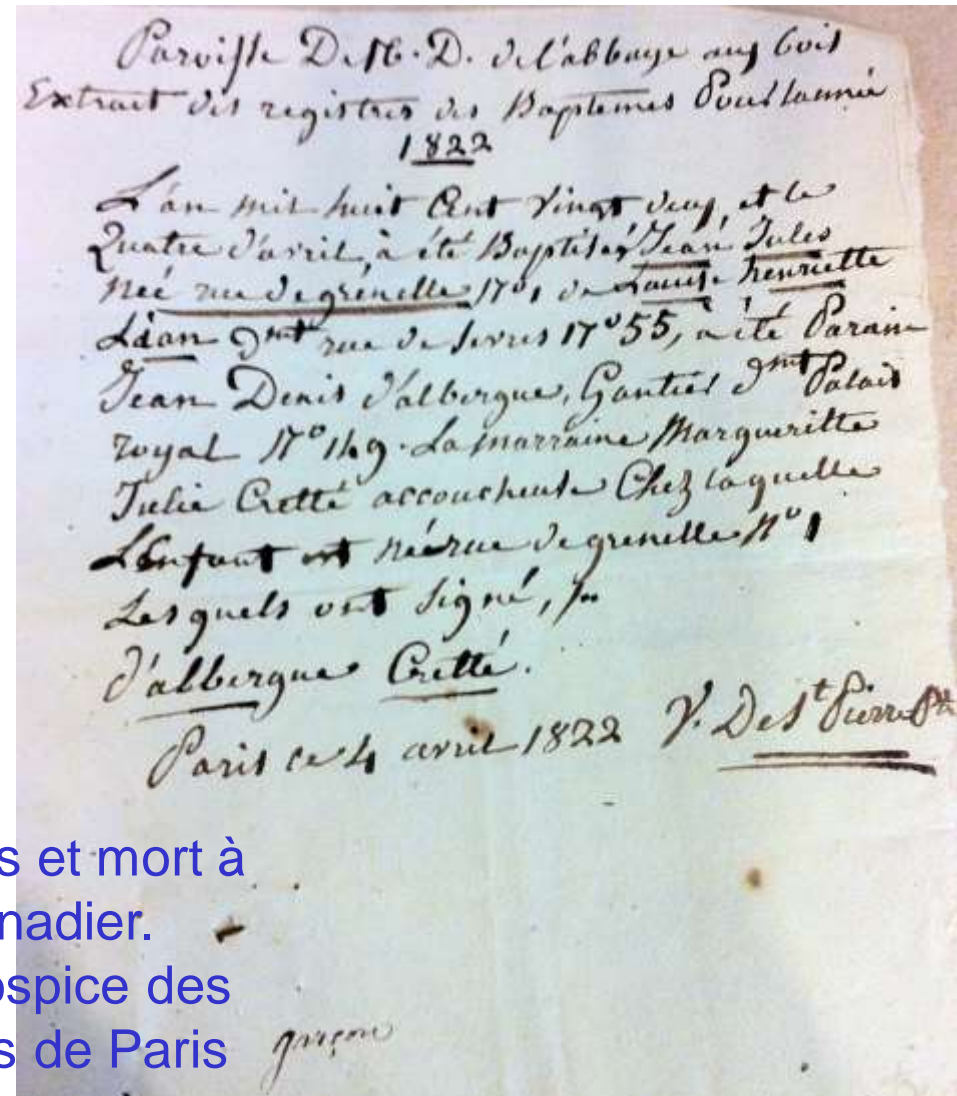 Paroisse De N. D. de l'abbaye aux bois
Extrait des registres des Baptemes Pour l'année
1822
L'an mil huit Cent Vingt deux, et le
Quatre d'avril, à été Baptisé Jean Jules
Née rue de grenelle N° 1 de Louise henriette
Lian dmt rue de sevres N° 55, a été Parain
Jean Denis d'albergue, Gantier dmt Palais
royal N° 149. La marraine Margueritte
Julie Cretté accoucheuse Chez laquelle
L'Enfant est née rue de grenelle N° 1
Lesquels ont signé,
d'albergue Cretté.
Paris ce 4 avril 1822 V. De St Pierre
s et mort à
nadier.
ospice des
s de Paris
garçon